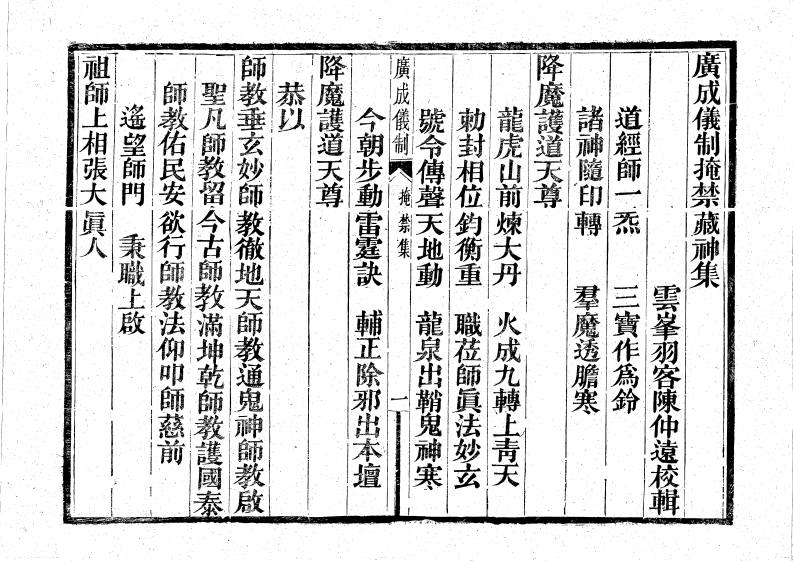 廣成儀制掩禁藏神集
雲峯羽客陳仲遠校輯
道經師一炁　三寶作爲鈴
諸神隨印轉　羣魔透膽寒
降魔護道天尊
龍虎山前煉大丹　火成九轉上靑天
勅封相位鈞衡重　職莅師眞法妙玄
號令傳聲天地動　龍泉出鞘鬼神寒
廣成儀制　掩禁集　一
今朝步動雷霆訣　輔正除邪出本壇
降魔護道天尊
恭以
師教垂玄妙師教徹地天師教通鬼神師教啟
聖凡師教留今古師教滿坤乾師教護國泰
師教佑民安欲行師教法仰叩師慈前
遙望師門　秉職上啟
祖師上相張大眞人